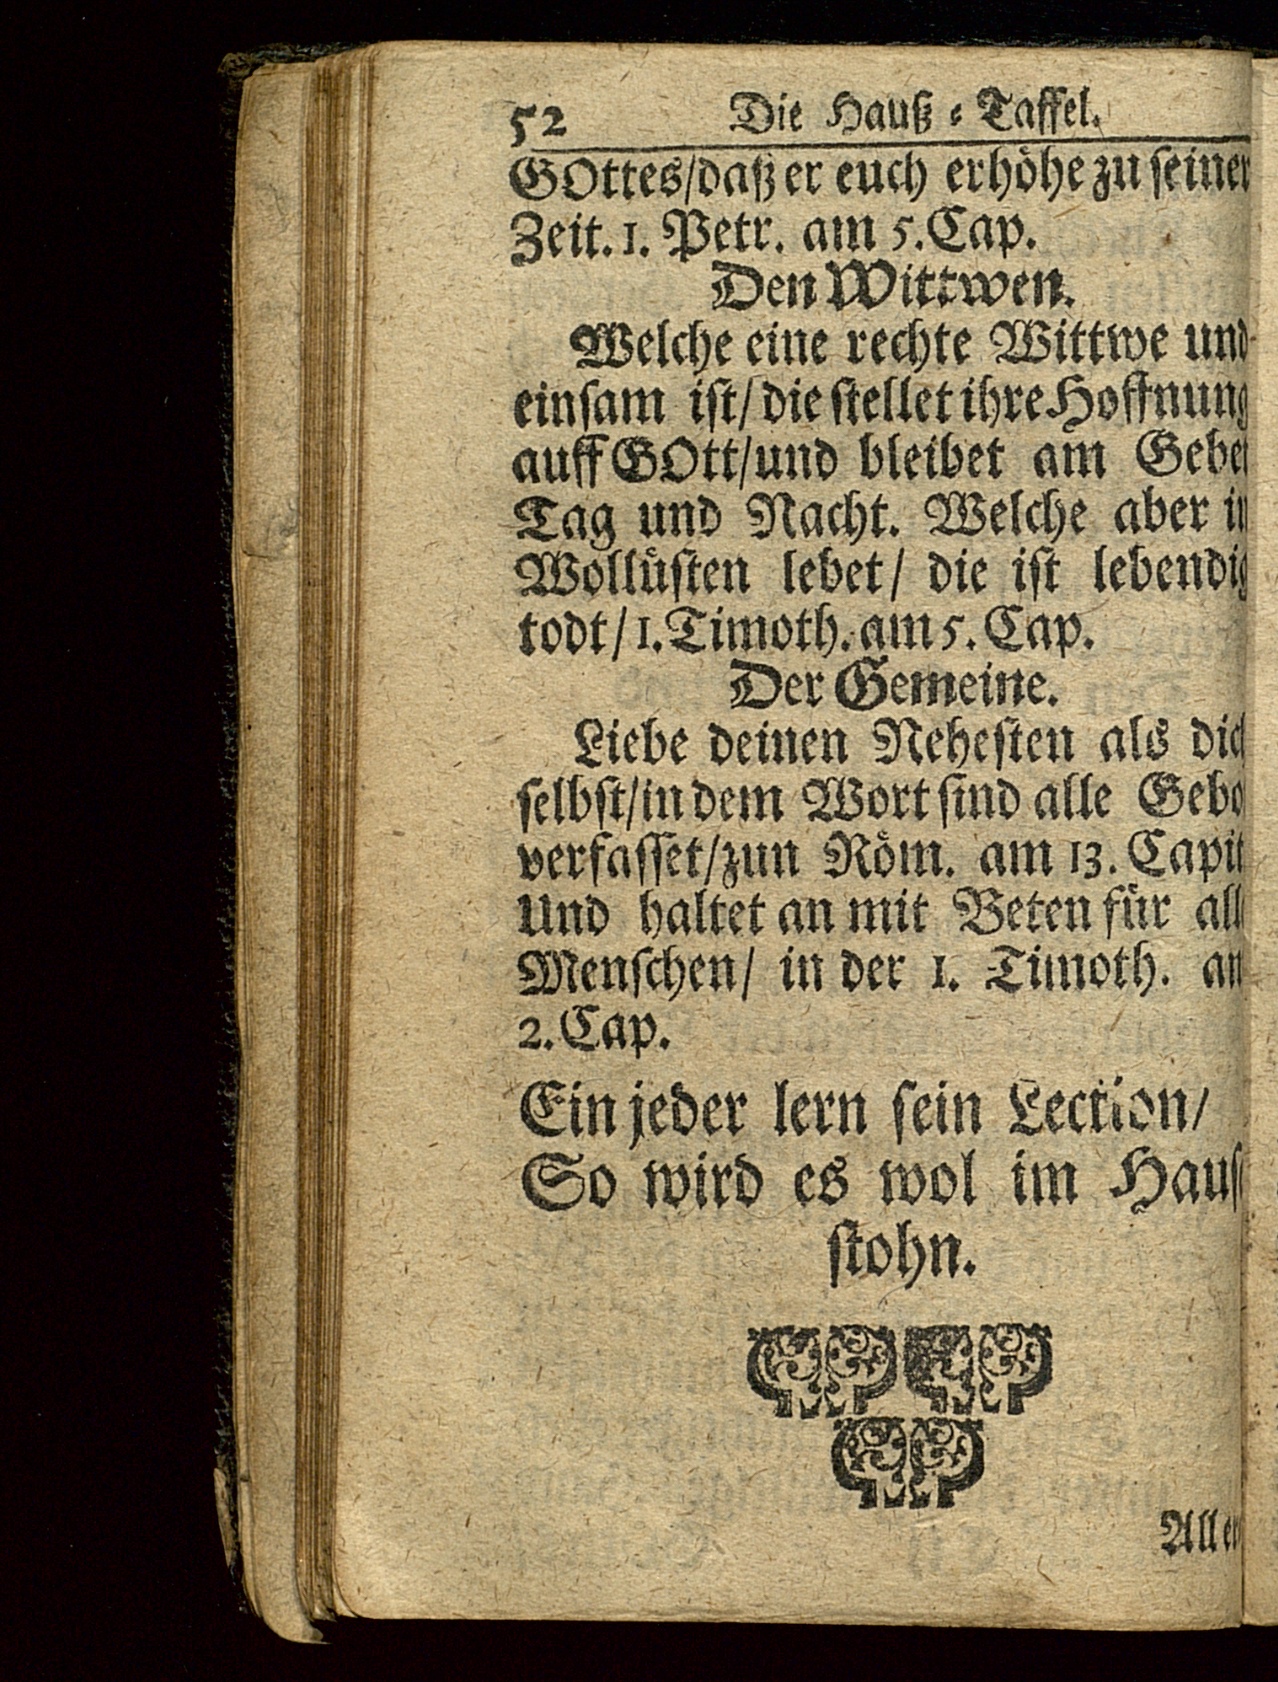 52 Die Hauß-Taffel.
GOttes/daß er euch erhöhe zu seiner
Zeit. 1. Petr. am 5. Cap.
Den Wittwen.
Welche eine rechte Wittwe und
einsam ist/ die stellet ihre Hoffnung
auff GOtt/und bleibet am Gebet
Tag und Nacht. Welche aber in
Wollüsten lebet/ die ist lebendig
todt/ 1. Timoth. am 5. Cap.
Der Gemeine.
Liebe deinen Nehesten als dich
selbst/in dem Wort sind alle Gebo
verfasset/zun Röm. am 13. Capit
Und haltet an mit Beten für alle
Menschen/ in der 1. Timoth. am
2. Cap.
Ein jeder lern sein Lection/
So wird es wol im Hause
stohn.
Aller